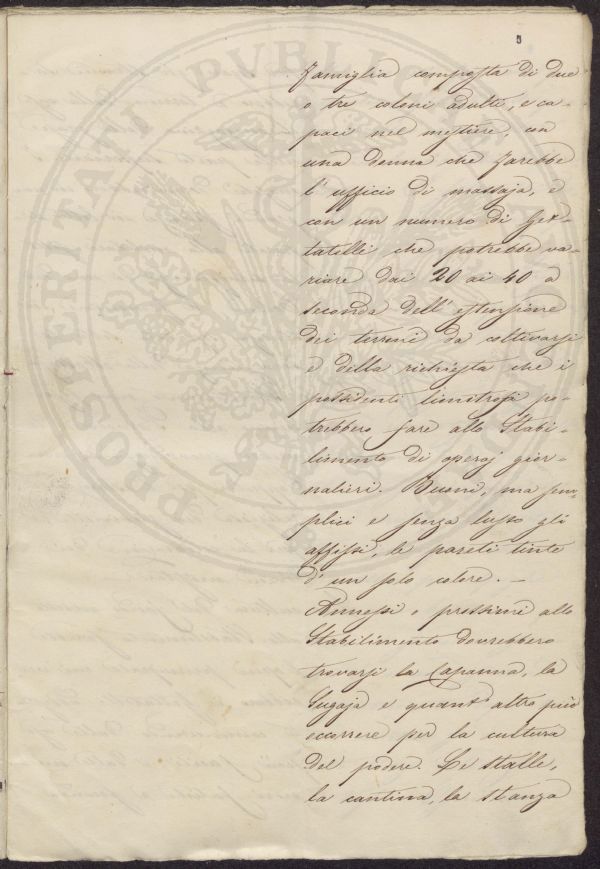 5
famiglia composta di due
o tre coloni adulti, e ca-
paci nel mestiere, con
una donna che farebbe
l'ufficio di massaja, e
con un numero di Get-
tatelli che potrebbe va-
riare dai 20 ai 40 a
seconda dell'estensione
dei terreni da coltivarsi
e della richiesta che i
possidenti limitrofi po-
trebbero fare allo Stabi-
limento di operaj gior-
nalieri. Buoni, ma sem-
plici e senza lusso gli
affissi, le pareti tinte
d'un solo colore. —
Annessi o prossimi allo
Stabilimento dovrebbero
trovarsi la Capanna, la
e quant'altro può
occorrere per la cultura
del podere. Le stalle,
la cantina, la stanza
PROSPERITATI PVBLICAE